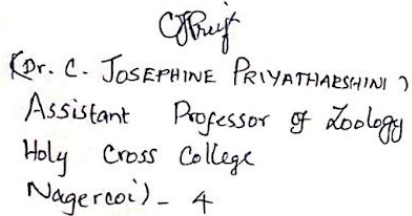 (Dr. C. JOSEPHINE PRIYATHARSHINI)
Assistant Professor of Zoology
Holy Cross College
Nagercoil - 4